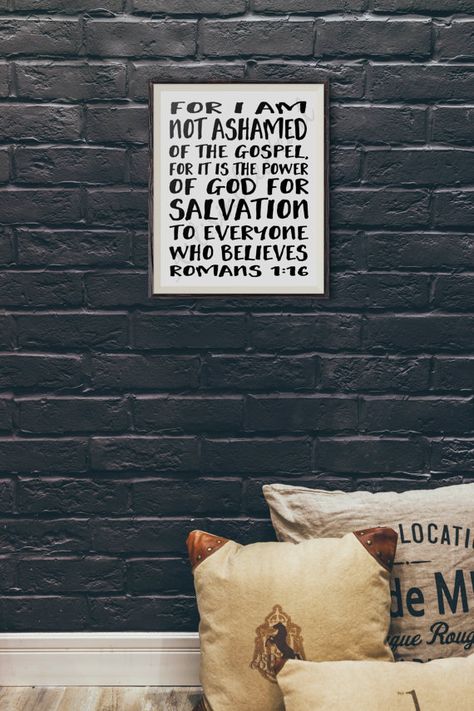 FOR I AM
NOT ASHAMED
OF THE GOSPEL.
FOR IT IS THE POWER
OF GOD FOR
SALVATION
TO EVERYONE
WHO BELIEVES
ROMANS 1:16
LOCATI
de M
que Roug
1